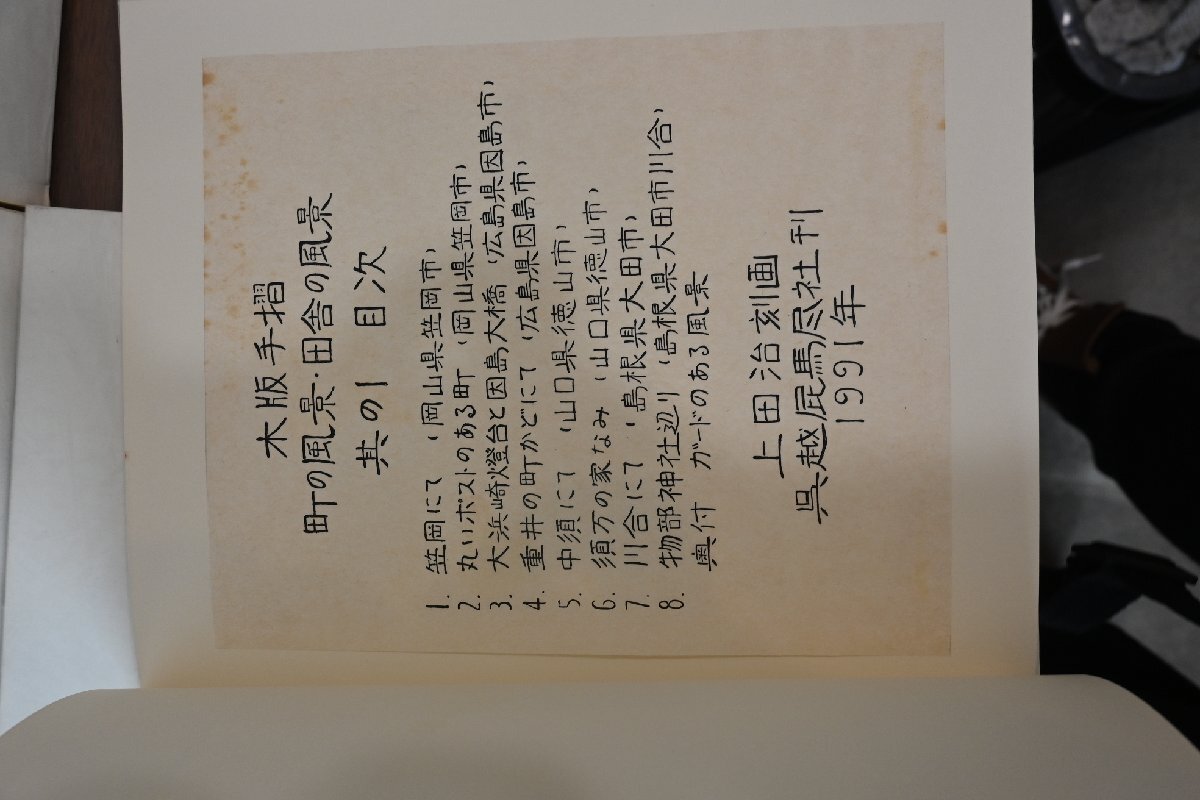 木版手摺
町の風景・田舎の風景
其の1 目次
1. 笠岡にて (岡山県笠岡市)
2. 丸いポストのある町 (岡山県笠岡市)
3. 大浜崎燈台と因島大橋 (広島県因島市)
4. 重井の町かどにて (広島県因島市)
5. 中須にて (山口県徳山市)
6. 須万の家なみ (山口県徳山市)
7. 川合にて (島根県大田市)
8. 物部神社辺り (島根県大田市川合)
奥付 ガードのある風景
上田治刻画
呉越屁馬尽社刊
1991年